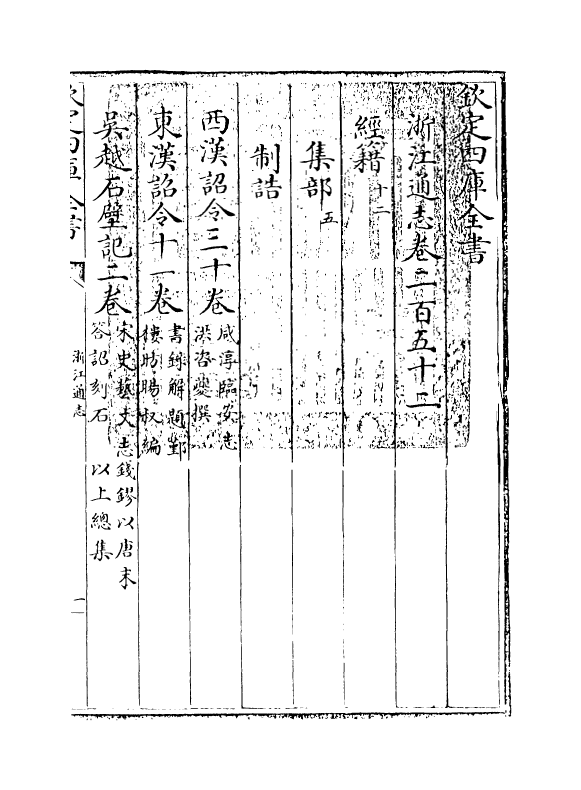 欽定四庫全書
浙江通志卷二百五十二
經籍十二
集部五
制誥
西漢詔令三十卷 咸淳臨安志
洪咨夔撰
東漢詔令十一卷 書錄解題鄞
樓昉暘叔編
吳越石壁記二卷 宋史藝文志錢鏐以唐末
答詔刻石 以上總集
浙江通志
一